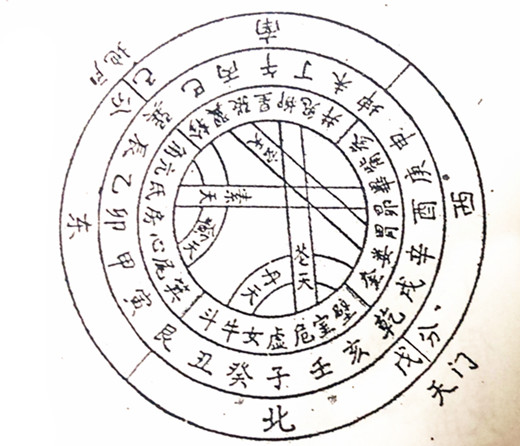 南
西
北
东
地户
己分
天门
戊分
午丁未坤申庚酉辛戌乾亥壬子癸丑艮寅甲卯乙辰巽巳丙
角亢氐房心尾箕
斗牛女虚危室壁
奎娄胃昴畢觜参
井鬼柳星张翼轸
玄天
素天
黅天
苍天
丹天